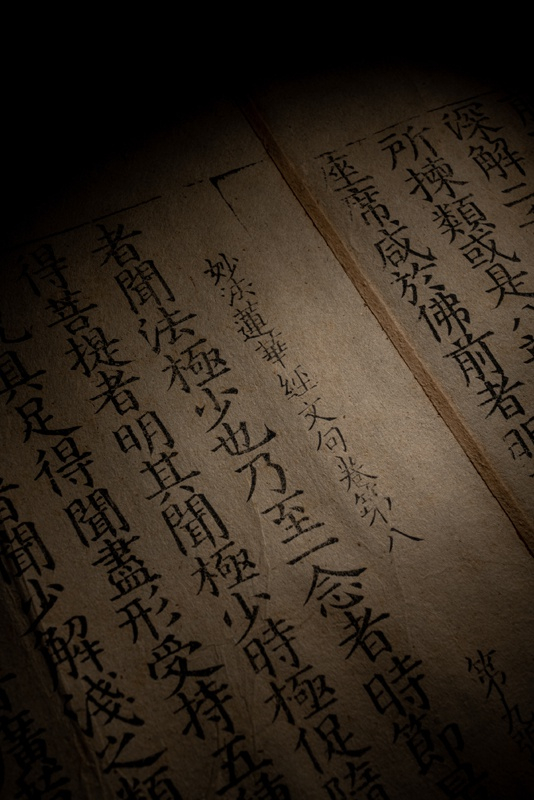 深解二
所揀類或是八
座席咸於佛前者明
第九
妙法蓮華經文句卷第八
者聞法極少也乃至一念者時節
得菩提者明其聞極少時極促隨
具足得聞盡形受持五種
者聞少解淺之類
廣